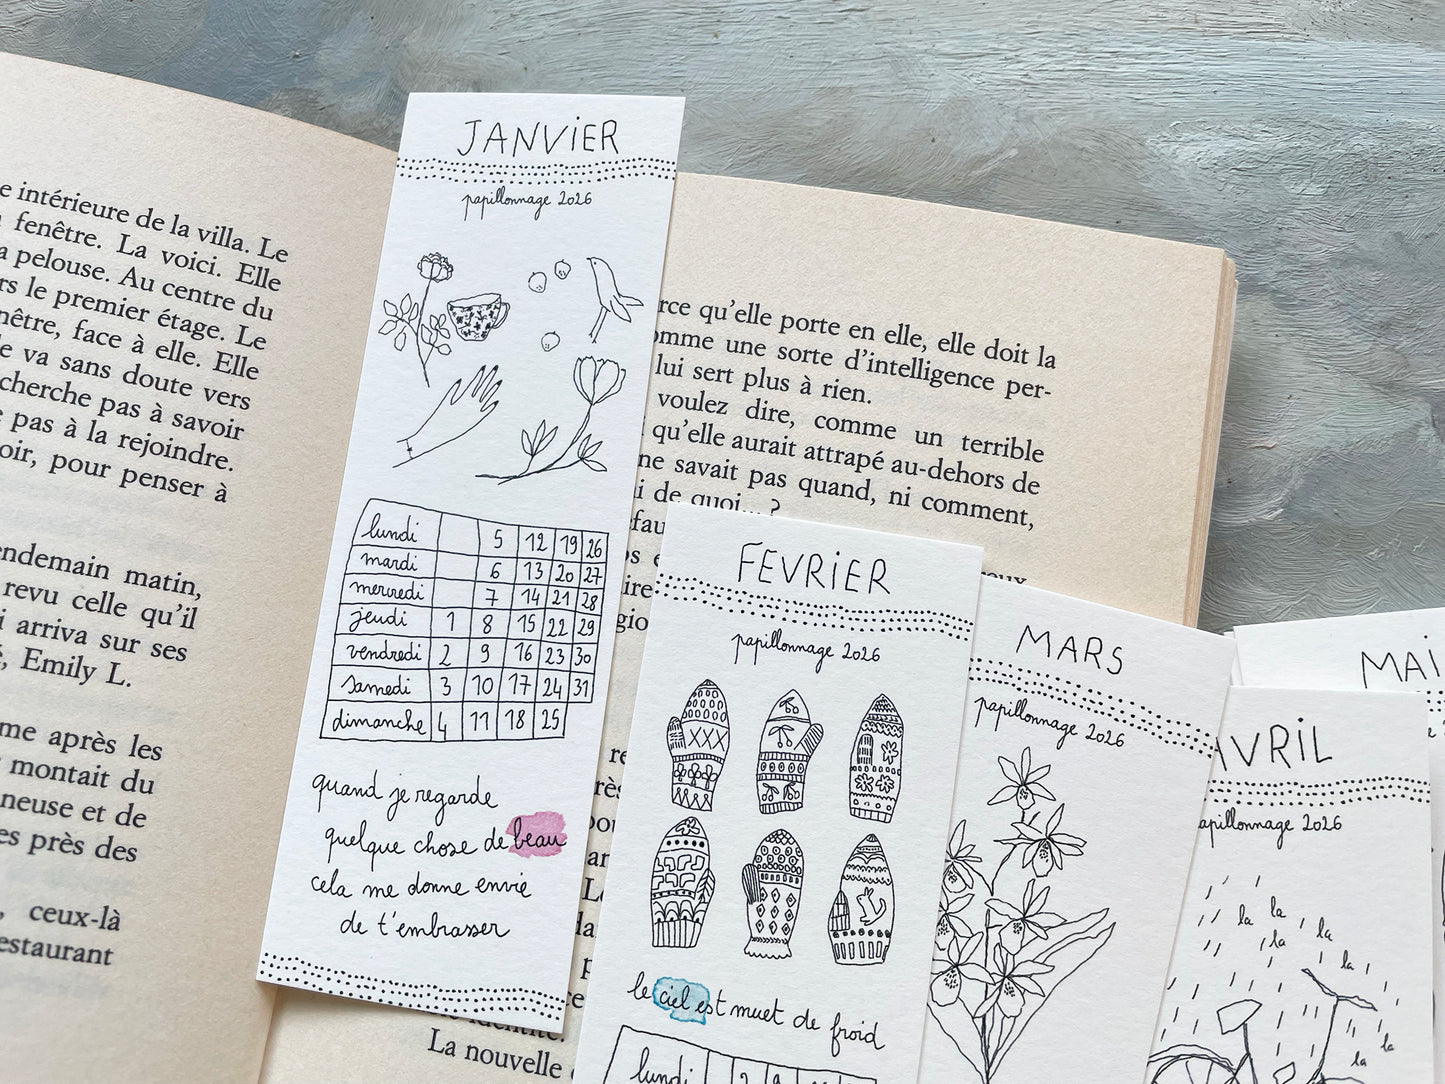 intérieure de la villa. Le
fenêtre. La voici. Elle
pelouse. Au centre du
le premier étage. Le
face à elle. Elle
va sans doute vers
cherche pas à savoir
pas à la rejoindre.
pour penser à
matin,
revu celle qu'il
arriva sur ses
Emily L.
me après les
montait du
neuse et de
près des
ceux-là
restaurant
JANViER
papillonnage 2026
lundi 5 12 19 26
mardi 6 13 20 27
mercredi 7 14 21 28
jeudi 1 8 15 22 29
vendredi 2 9 16 23 30
samedi 3 10 17 24 31
dimanche 4 11 18 25
quand je regarde
quelque chose de beau
cela me donne envie
de t'embrasser
qu'elle porte en elle, elle doit la
une sorte d'intelligence per-
lui sert plus à rien.
voulez dire, comme un terrible
qu'elle aurait attrapé au-dehors de
ne savait pas quand, ni comment,
de quoi... ?
La nouvelle
FEVRiER
papillonnage 2026
le ciel est muet de froid
lundi 2 9
MARS
papillonnage 2026
AVRiL
papillonnage 2026
la la
la la
la
la
la
MAi